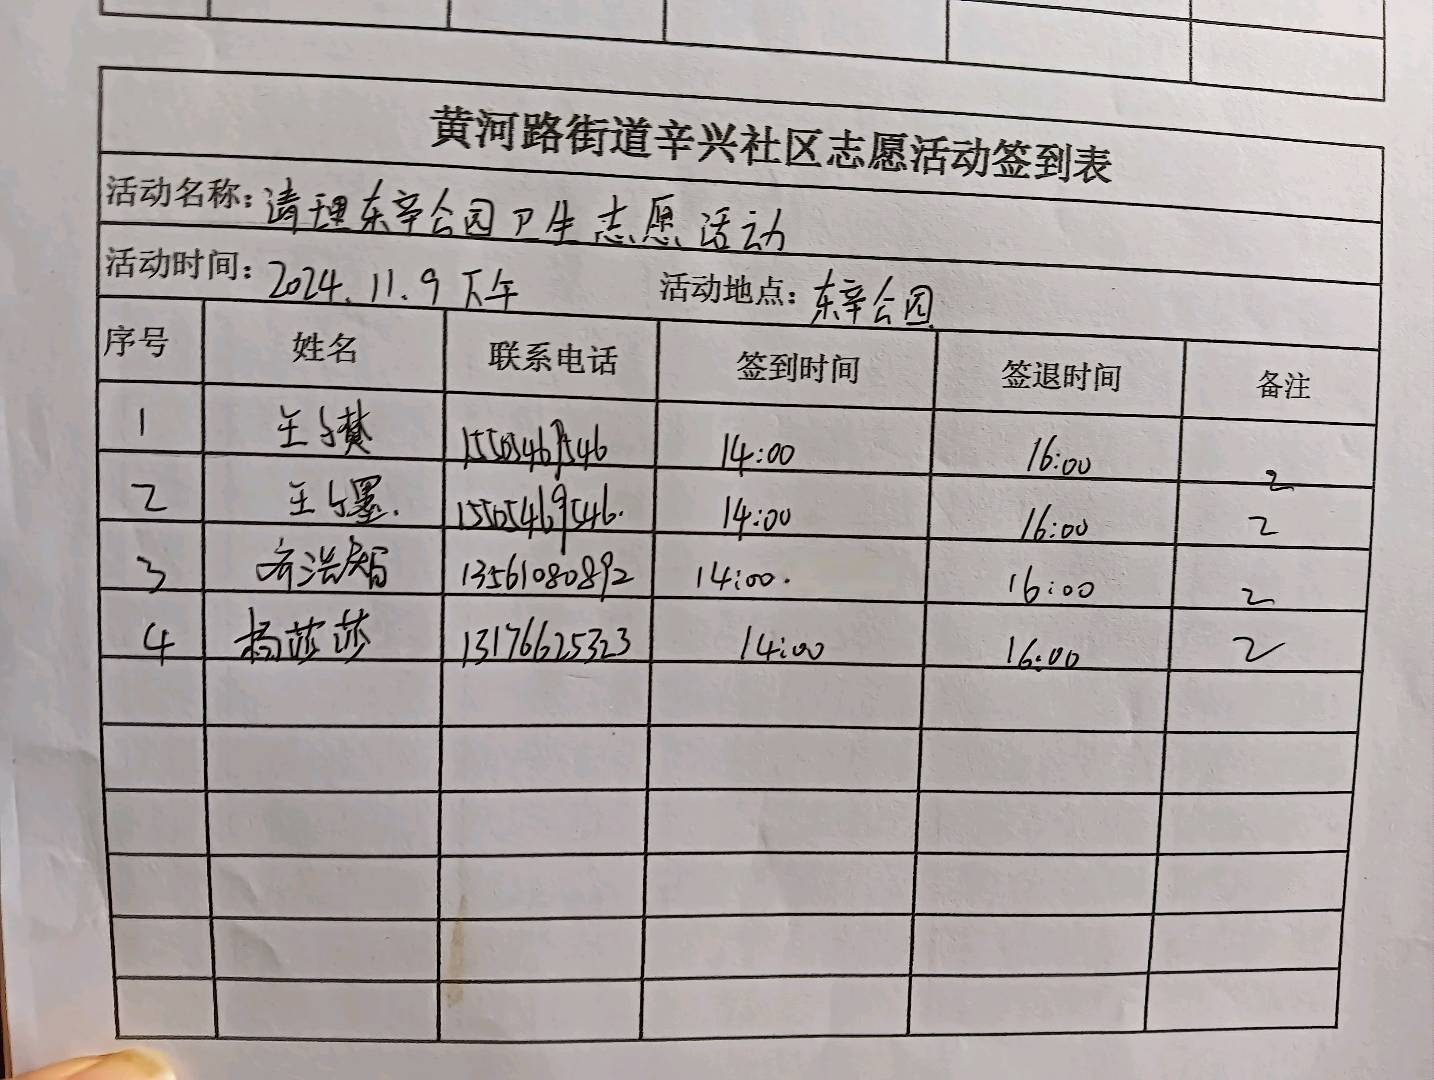 黄河路街道辛兴社区志愿活动签到表
活动名称：请理东辛公园卫生志愿活动
活动时间：2024.11.9下午 活动地点：东辛公园
序号 姓名 联系电话 签到时间 签退时间 备注
1 王 15505469546 14:00 16:00 2
2 王 墨. 15505469546. 14:00 16:00 2
3 齐浩智 13561080892 14:00. 16:00 2
4 杨莎莎 13176625323 14:00 16:00 2